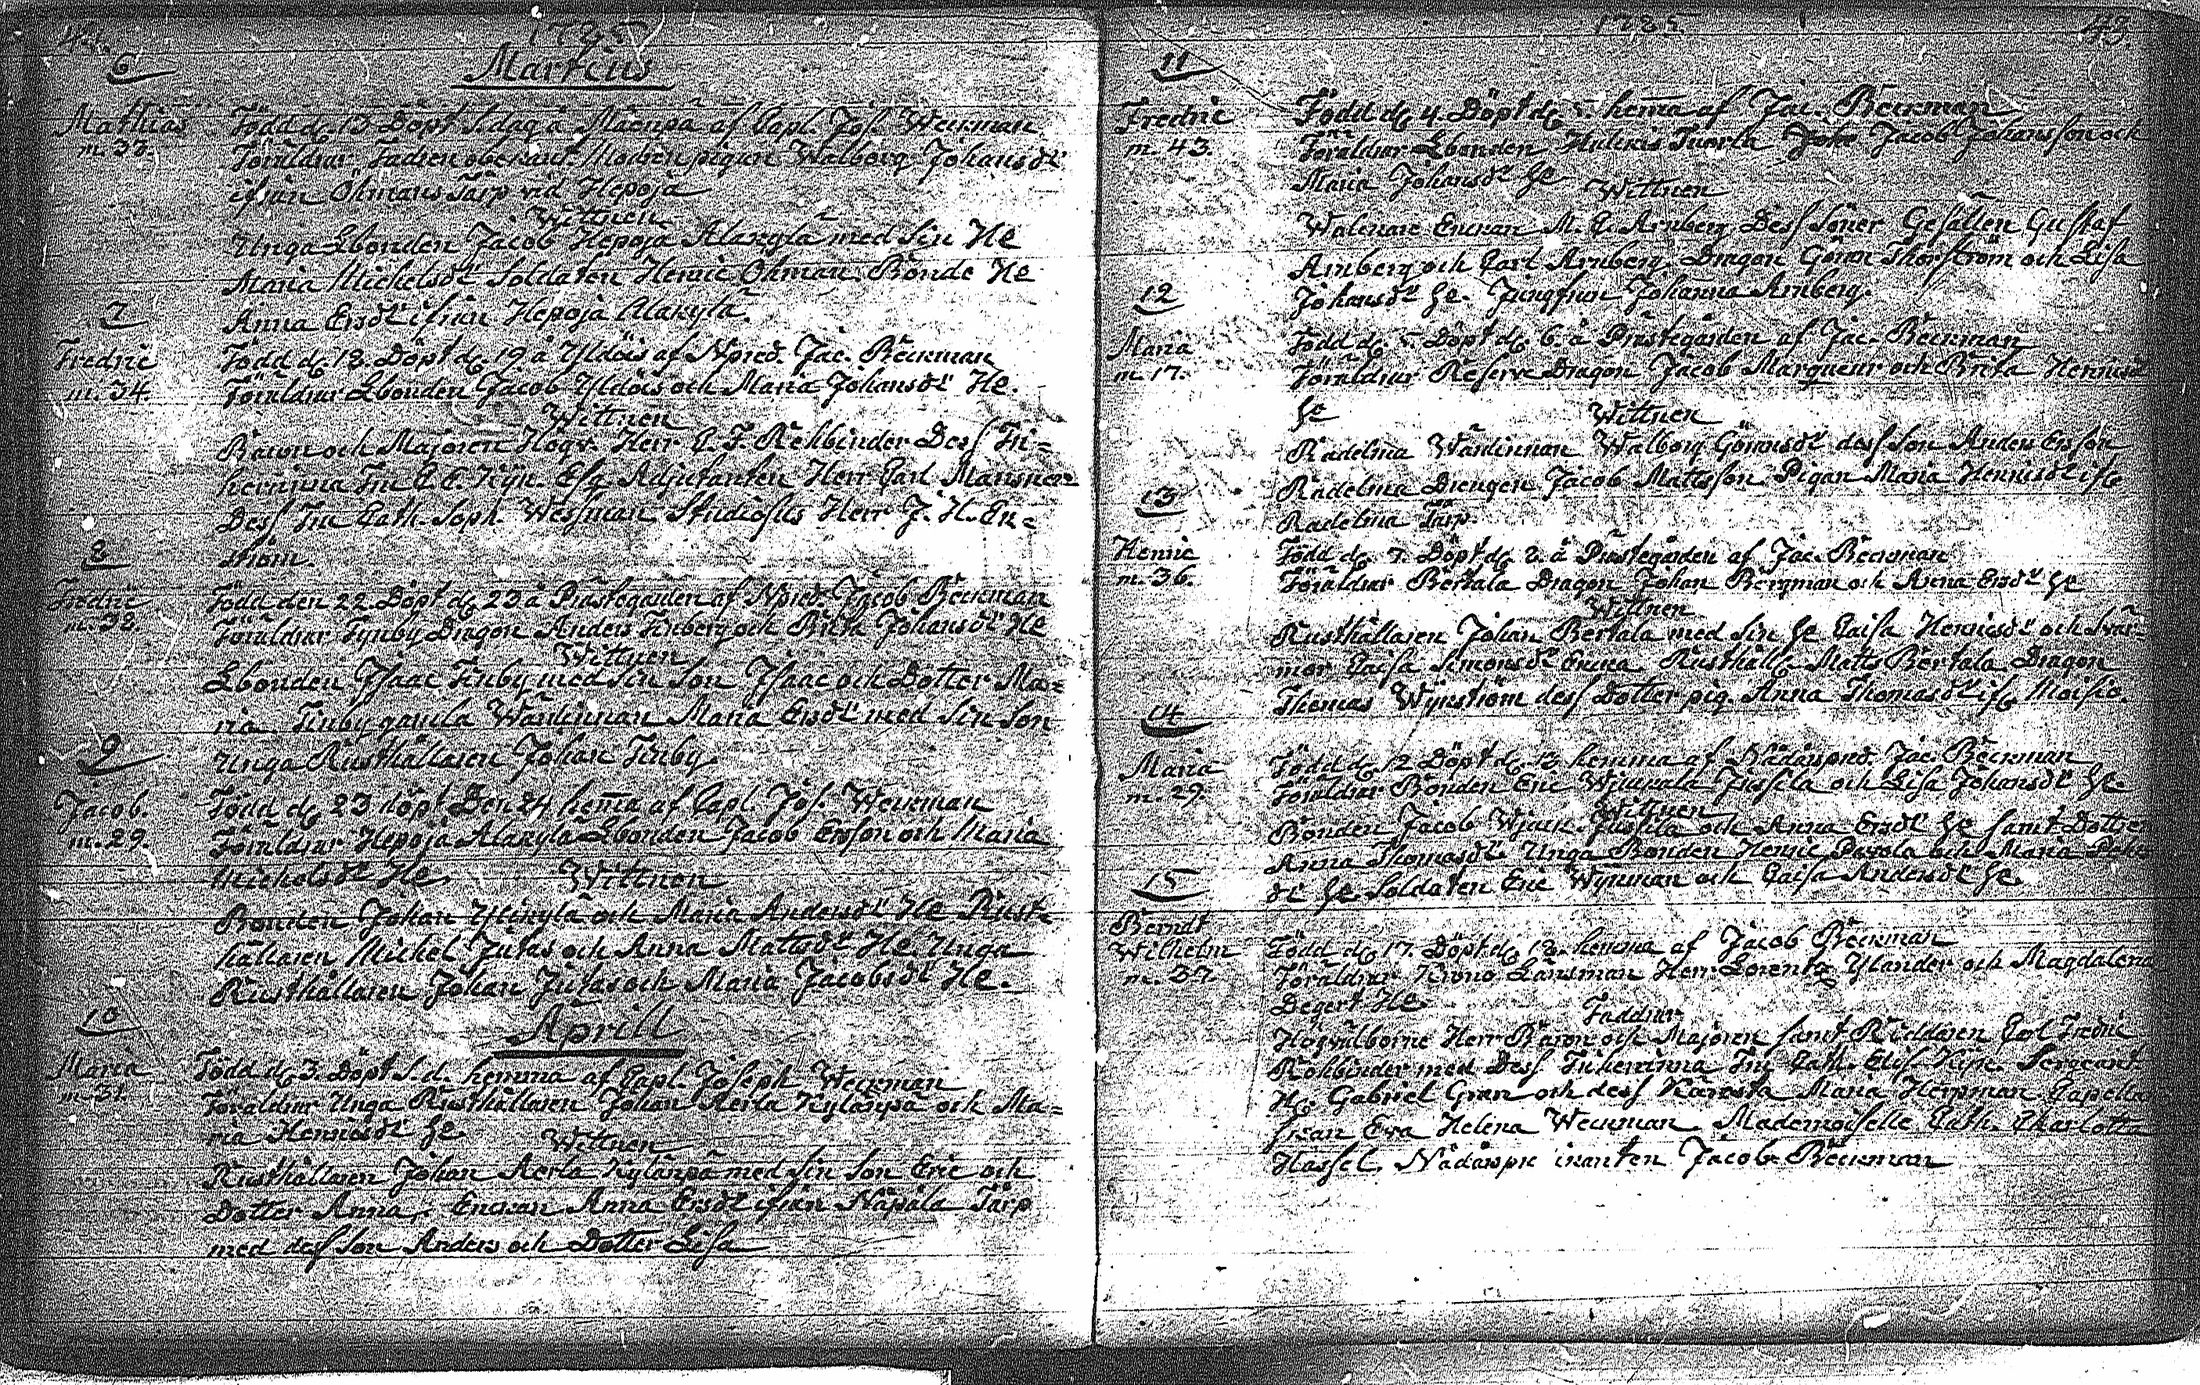 42.
1785
6
Martius
Mathias
m. 33.
Född d. 13 Döpt s. dag å Mäenpä af Capl. Jos. Weckman
Föräldrar Fadren obekant. Modren pigan Walborg Johansdr
ifrån Öhmans Tårp vid Hepoja
Wittnen
Unga Lbonden Jacob Hepoja Alakylä med sin He
Maria Michelsdr Soldaten Henric Öhman Bonde He
Anna Ersdr ifrån Hepoja Alakylä.
7
Fredric
m. 34.
Född d. 18 Döpt d. 19 å Yldöis af Npred. Jac. Böckman
Föräldrar Lbonden Jacob Yldöis och Maria Johansdr He.
Wittnen
Baron och Majoren Högv. Herr C. F. Rehbinder Dess Fri=
herrinna Fru C. E. Kijn. Esq. Adjutanten Herr Carl Mansner
Dess Fru Cath. Soph. Wessman Studiosus Herr J. H. En=
ström.
8
Fredric
m. 38.
Född den 22 Döpt d. 23 å Prästegården af Npred. Jacob Böckman
Föräldrar Finby Dragon Anders Finberg och Brita Johansdr He
Wittnen
Lbonden Isaac Finby med sin son Isaac och Dotter Ma=
ria. Finby gamla Wärdinnan Maria Ersdr med sin Son
Unga Rusthållaren Johan Finby.
9
Jacob.
m. 29.
Född d. 23 döpt Den 24 hema af Capl. Jos. Weckman
Föräldrar Hepoja Alakylä Lbonden Jacob Ersson och Maria
Michelsdr He
Wittnen
Bonden Johan Ylikylä och Maria Andersdr He Rust=
hållaren Michel Jutas och Anna Mattsdr He Unga
Rusthållaren Johan Jutas och Maria Jacobsdr He.
10
Aprill
Maria
m. 31.
Född d. 3. Döpt s.d. hemma af Capl. Joseph Weckman
Föräldrar Unga Rusthållaren Johan Aerla Kylänpä och Ma=
ria Henricsdr He
Wittnen
Rusthållaren Johan Aerla Kylänpä med sin son Eric och
Dotter Anna. Enckan Anna Ersdr ifrån Näpälä Tårp
med dess son Anders och Dotter Lisa
1785.
43.
11
Fredric
m. 43.
Född d. 4. Döpt d. 5. hema af Jac. Böckman
Föräldrar Lbonden Jacob Johansson och
Maria Johansdr He
Wittnen
Enckan M. C. Arnberg Dess söner Gesällen Gustaf
Arnberg och Carl Arnberg. Dragon Göran Thorström och Lisa
Johansdr He. Jungfrun Johanna Arnberg.
12
Maria
m. 17.
Född d. 5. Döpt d. 6. å Prästegården af Jac. Böckman
Föräldrar Reserv Dragon Jacob Marqueur och Brita Henricsdr
He
Wittnen
Radelma Wärdinnan Walborg Göransdr dess son Anders Ersson
Radelma Drengen Jacob Mattsson Pigan Maria Henricsdr ifr.
Radelma Tårp.
13
Henric
m. 36.
Född d. 7. Döpt d. 8. å Prästegården af Jac. Böckman
Föräldrar Bertala Dragon Johan Bergman och Anna Ersdr He
Wittnen
Rusthållaren Johan Bertala med sin He Caisa Henricsdr och Svär-
mor Caisa Simonsdr Encka. Rusthåll. Matts Bertala Dragon
Thomas Wijnström dess Dotter pig. Anna Thomasdr ifr. Moisio.
14
Maria
m. 29.
Född d. 12 Döpt d. 13 hemma af Nådårspred. Jac. Böckman
Föräldrar Bonden Eric Jussila och Lisa Johansdr He
Wittnen
Bonden Jacob Jussila och Anna Ersdr He samt Dotter
Anna Thomasdr. Unga Bonden Henric och Maria
dr He Soldaten Eric Wijnman och Caisa Andersdr He.
15
Berndt
Wilhelm
m. 37.
Född d. 17. Döpt d. 18. hemma af Jacob Böckman
Föräldrar Krono Länsman Herr Lorentz Ylander och Magdalena
Degert He
Faddrar
Högvälborne Herr Baron och Majoren samt Riddaren Carl Fredric
Rehbinder med Dess Friherrinna Fru Cath. Elis. Kijn. Sergeant
H. Gabriel Gran och dess Käresta Maria Heipman Capella
fruan Eva Helena Weckman Mademoiselle Cath. Charlotta
Hassel. Jacob Böckman